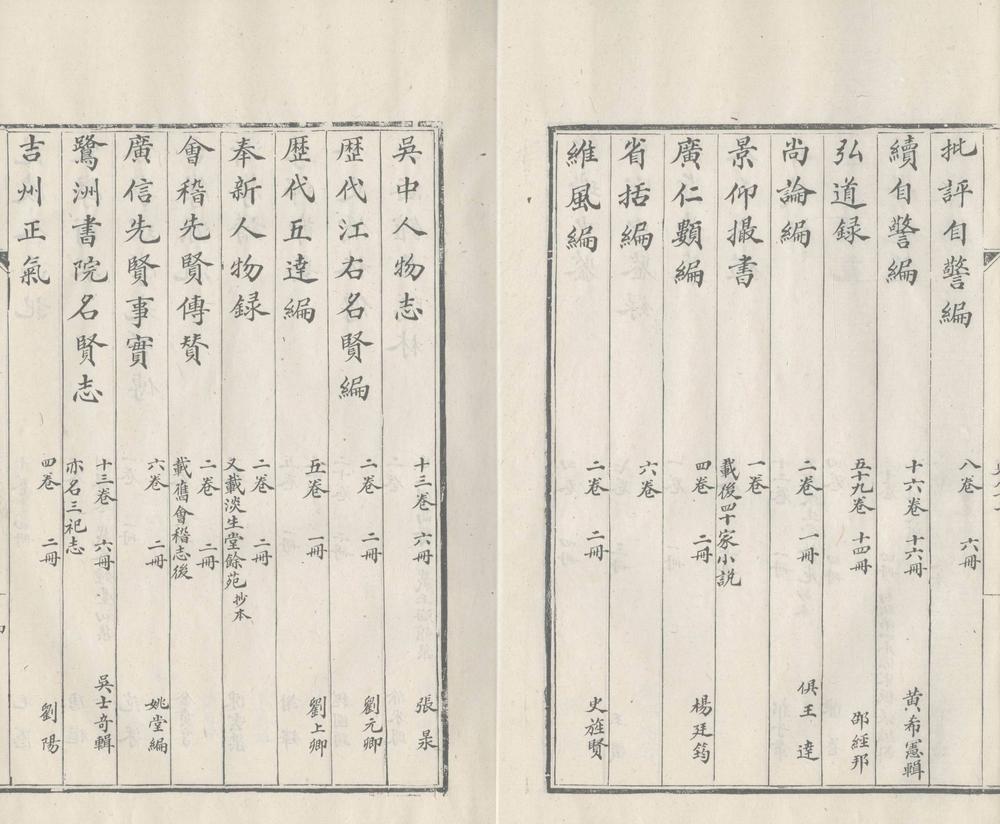 批評自警編 八卷 六冊
續自警編 十六卷 十六冊 黃希憲輯
弘道録 五十九卷 十四冊 邵經邦
尚論編 二卷 一冊 俱王達
景仰撮書 一卷 載後四十家小説
廣仁類編 四卷 二冊 楊廷筠
省括編 六卷
維風編 二卷 二冊 史旌賢
吳中人物志 十三卷 六冊 張㫤
歷代江右名賢編 二卷 二冊 劉元卿
歷代五達編 五卷 一冊 劉上卿
奉新人物録 二卷 二冊 又載淡生堂餘苑 抄本
會稽先賢傳賛 二卷 二冊 載舊會稽志後
廣信先賢事實 六卷 二冊 姚堂編
鷺洲書院名賢志 十三卷 六冊 亦名三祀志 吳士奇輯
吉州正氣 四卷 二冊 劉陽